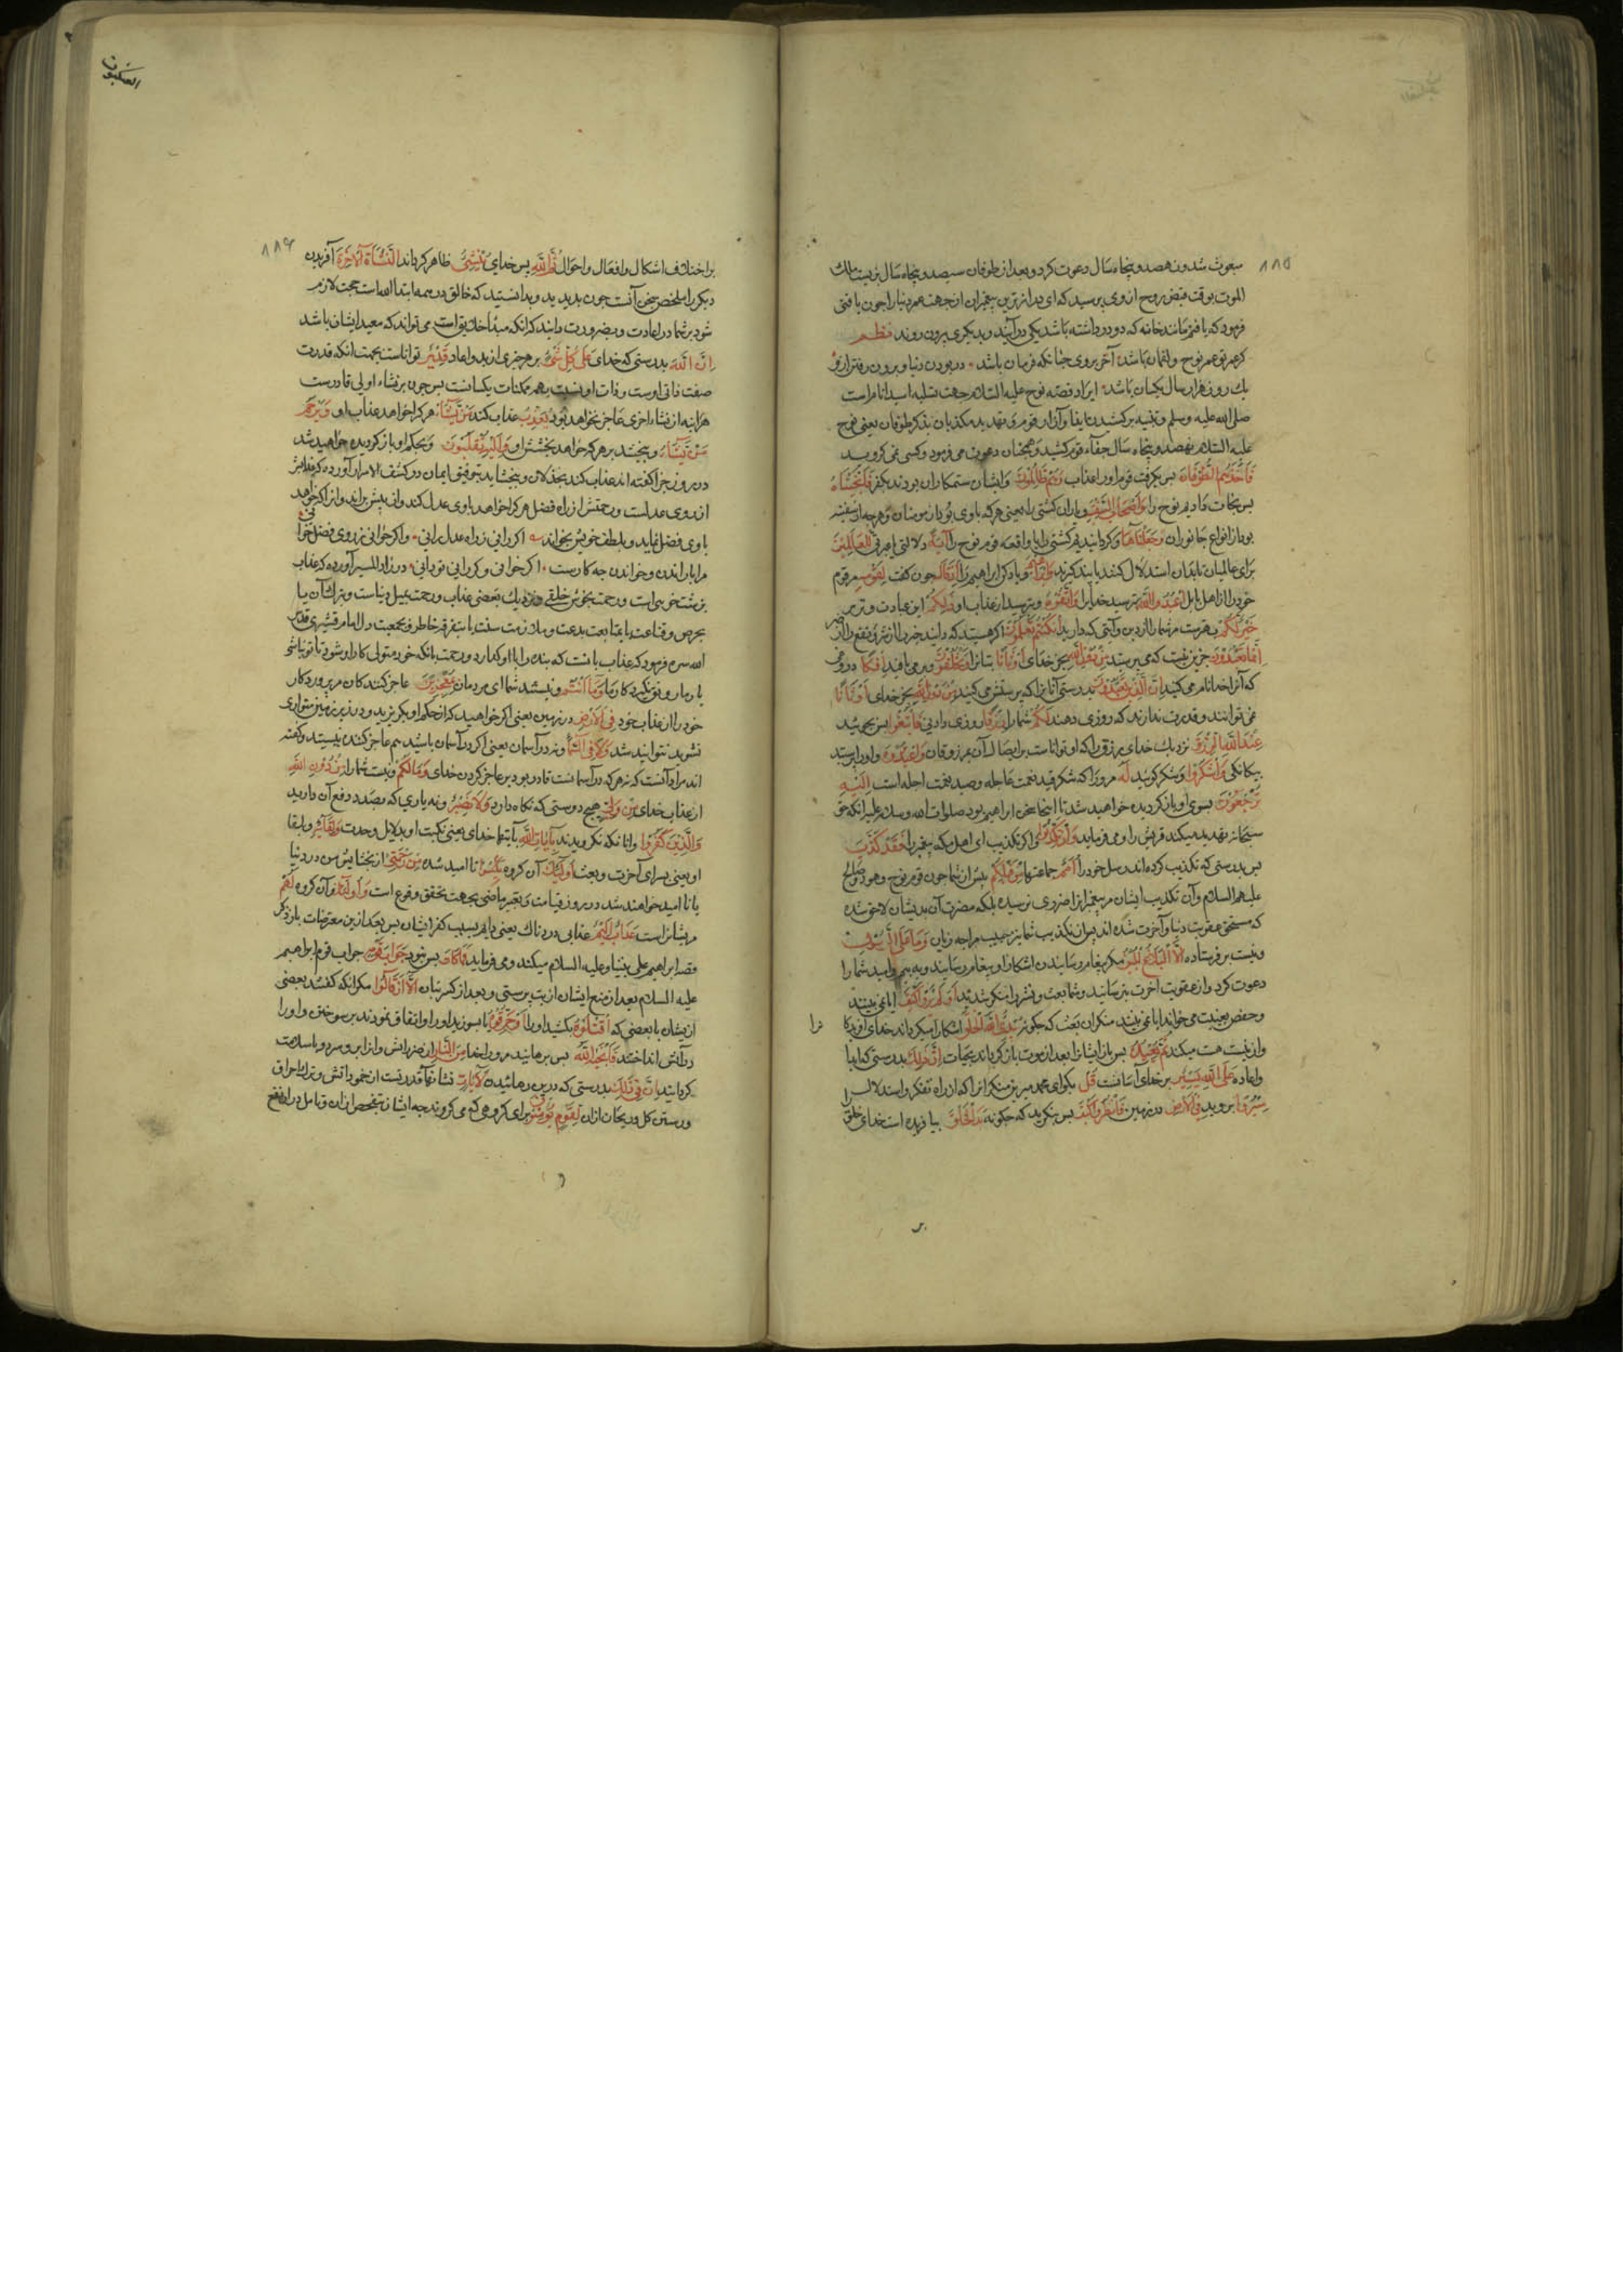 مبعوث شد ونهصد وپنجاه سال دعوت کرد وبعد از طوفان سیصد وپنجاه سال بزیست ملك
الموت بوقت قبض روح از وی پرسید که ای درازترین پیغمبران از جهت عمر دنیا را چون یافتی
فرمود که یافتم مانند خانه که دو در داشته باشد یکی در آیند وبدیکری بیرون روند نظم
کر عمر تو عمر نوح ولقمان باشد آخر بروی چنانکه فرمان باشد در بودن دنیا و برون رفتن ازو
یك روز وهزار سال یکسان باشد ایراد قصه نوح علیه السلام جهت تسلیه سید انام است
صلی الله علیه وسلم وتنبیه بر کشیدن ایذا وآزار قوم وتهدید مکذبان بذکر طوفان یعنی نوح
علیه السلام نهصد وپنجاه سال جفاء قوم کشید وهمچنان دعوت می فرمود وکسی نمی کروید
فَاَخَذَهُمُ الطُّوفَانُ پس بکرفت قوم او را عذاب وَهُمْ ظَالِمُونَ وایشان ستمکاران بودند بکفر فَاَنْجَيْنَاهُ
پس نجات دادیم نوح را وَاَصْحَابَ السَّفِينَةِ ویاران کشتی را یعنی هر که با وی بود از مومنان وهرچه در سفینه
بود از انواع جانوران وَجَعَلْنَاهَا وکردانیدیم کشتی را یا واقعه قوم نوح را آيَةً دلالتی وعبرتی لِلْعَالَمِينَ
برای عالمیان تا بدان استدلال کنند یا پند کیرند وَاِبْرَاهِيمَ ویاد کن ابراهیم را اِذْ قَالَ چون کفت لِقَوْمِهِ مر قوم
خود را از اهل بابل اعْبُدُوا اللهَ بپرستید خدایرا وَاتَّقُوهُ وبترسید از عذاب او ذَلِكُمْ این عبادت وترس
خَيْرٌ لَكُمْ بهترست مر شما را از دین وآئینی که دارید اِنْ كُنْتُمْ تَعْلَمُونَ اکر هستید که دانید خیر را از شر ونفع را از ضر
اِنَّمَا تَعْبُدُونَ جزین نیست که می پرستید مِنْ دُونِ اللهِ بجز خدای اَوْثَانًا بتانرا وَتَخْلُقُونَ ومی بافید اِفْكًا دروغی
که آنرا خدا نام می کنید اِنَّ الَّذِينَ تَعْبُدُونَ بدرستی آنانرا که پرستش می کنید مِنْ دُونِ اللهِ بجز خدای اَوْثَانًا
نمی توانند وقدرت ندارند که روزی دهند لَكُمْ شما را رِزْقًا روزی دادنی فَابْتَغُوا پس بجویید
عِنْدَ اللهِ الرِّزْقَ نزدیك خدای روزی را که او تواناست بر ایصال آن بمرزوقان وَاعْبُدُوهُ واو را پرستید
بیکانکی وَاشْكُرُوا وشکر کویید لَهُ مرورا که شکر قید نعمت عاجله وصید نعمت آجله است اِلَيْهِ
تُرْجَعُونَ بسوی او باز کردیده خواهید شد تا اینجا سخن ابراهیم بود صلوات الله وسلامه علیه آنکه حق
سبحانه تهدید میکند قریش را ومی فرماید وَاِنْ تُكَذِّبُوا واکر تکذیب ای اهل مکه پیغمبر را فَقَدْ كَذَّبَ
پس بدرستی که تکذیب کرده اند رسل خود را اُمَمٌ جماعتها مِنْ قَبْلِكُمْ پیش از شما چون قوم نوح وهود وصالح
علیهم السلام وآن تکذیب ایشان مر پیغمبرانرا ضرری نرسیده بلکه مضرت آن بدیشان لاحق شده
که مستحق عقوبت دنیا وآخرت شده اند پس از تکذیب شما نیز حبیب مرا چه زیان وَمَا عَلَى الرَّسُولِ
ونیست بر فرستاده اِلَّا الْبَلَاغُ الْمُبِينُ مکر پیغام رسانیدن آشکارا او پیغام رسانید وبه بیم وامید شما را
دعوت کرد واز عقوبت آخرت بترسانید وشما بعث ونشر را منکر شدید اَوَلَمْ يَرَوْا كَيْفَ آیا نمی بینند
وحفص بغیبت می خواند آیا نمی بینند منکران بعث که چکونه يُبْدِئُ اللهُ الْخَلْقَ آشکارا میکرداند خدای آفریدکانرا
واز نیست هست میکند ثُمَّ يُعِيدُهُ پس باز ایشانرا بعد از موت باز کرداند بحیات اِنَّ ذَلِكَ بدرستی که ابدا
واعاده عَلَى اللهِ يَسِيرٌ بر خدای آسانست قُلْ بکو ای محمد مر این منکرانرا که از راه تفکر واستدلال
سِيرُوا بروید فِي الْاَرْضِ در زمین فَانْظُرُوا كَيْفَ پس بنکرید که چکونه بَدَاَ الْخَلْقَ بیافریده است خدای خلق
بر اختلاف اشکال وافعال واحوال ثُمَّ اللهُ پس خدای يُنْشِئُ ظاهر کرداند النَّشْاَةَ الْآخِرَةَ آفریدن
دیکر را ملخص سخن آنست چون بدیدید وبدانستید که خالق در همه ابتدا الله است حجت لازم
شود بر شما در اعادت وبضرورت دانید که آنکه مبدأ خلایق است می تواند که معید ایشان باشد
اِنَّ اللهَ بدرستی که خدای عَلَى كُلِّ شَيْءٍ بر هر چیزی از بد واعاده قَدِيرٌ تواناست بجهت آنکه قدرت
صفت ذاتی اوست وذات او نسبت بهمه ممکنات یکسانست پس چون بر نشاء اولی قادرست
هر آینه از نشاء اخری عاجز نخواهد بود يُعَذِّبُ عذاب کند مَنْ يَشَاءُ هر کرا خواهد عذاب او وَيَرْحَمُ
مَنْ يَشَاءُ وببخشد بر هر که خواهد بخشش او وَاِلَيْهِ تُقْلَبُونَ وبحکم او باز کردیده خواهید شد
در روز جزا کفته اند عذاب کند بخذلان وببخشاید بتوفیق ایمان ودر کشف الاسرار آورده که عذابش
از روی عدلست ورحمتش از راه فضل هر کرا خواهد با وی عدل کند واز پیش براند واز آنکه خواهد
با وی فضل نماید وبلطف خویش بخواند اکر رانی ز راه عدل رانی واکر خوانی ز روی فضل خوانی
مرا با راندن وخواندن چه کارست اکر خوانی وکر رانی تو دانی در زاد المسیر آورده که عذاب
بزشت خویی است ورحمت بخوش خلقی ونزدیك بعضی عذاب ورحمت بمیل دنیاست وبترك آن یا
بحرص وقناعت یا بمتابعت بدعت وملازمت سنت یا بتفرقه خاطر وبجمعیت دل امام قشیری قدس
الله سره فرمود که عذاب بآنست که بنده را با او کذارد ورحمت بآنکه خود متولی کار او شود تا تو باشی
یار ما رونق نکیرد کار ما وَمَا اَنْتُمْ ونیستید شما ای مردمان بِمُعْجِزِينَ عاجز کنندکان مر پروردکار
خود را از عذاب خود فِي الْاَرْضِ در زمین یعنی اکر خواهید که از حکم او بکریزید ودر زیر زمین متواری
شوید نتوانید شد وَلَا فِي السَّمَاءِ ونه در آسمان یعنی اکر در آسمان باشید هم عاجز کننده نیستید وکفته
اند مراد آنست که نه هر که در آسمانست قادر بود بر عاجز کردن خدای وَمَا لَكُمْ ونیست شما را مِنْ دُونِ اللهِ
از عذاب خدای مِنْ وَلِيٍّ هیچ دوستی که نکاه دارد وَلَا نَصِيرٍ ونه یاری که بصدد دفع آن دارید
وَالَّذِينَ كَفَرُوا وآنانکه نکرویدند بِآيَاتِ اللهِ بآیتهاء خدای یعنی بکتب او بدلایل وحدت وَلِقَائِهِ وبلقاء
او یعنی بسرای آخرت وبعث اُولَئِكَ آن کروه يَئِسُوا ناامید شده مِنْ رَحْمَتِي از بخشایش من در دنیا
یا ناامید خواهند شد در روز قیامت وتعبیر ماضی بجهت تحقق وقوع است وَاُولَئِكَ وآن کروه لَهُمْ
مریشانراست عَذَابٌ اَلِيمٌ عذابی دردناك یعنی دایم بسبب کفر ایشان پس بعد ازین معترضات باز ذکر
قصه ابراهیم علی نبینا وعلیه السلام میکند ومی فرماید فَمَا كَانَ پس نبود جَوَابَ قَوْمِهِ جواب قوم ابراهیم
علیه السلام بعد از منع ایشان از بت پرستی وبعد از کسر بتان اِلَّا اَنْ قَالُوا مکر آنکه کفتند بعضی
ازیشان با بعضی که اقْتُلُوهُ بکشید او را اَوْ حَرِّقُوهُ یا بسوزید او را واتفاق نمودند بر سوختن واو را
در آتش انداختند فَاَنْجَيهُ اللهُ پس برهانید مر او را خدا مِنَ النَّارِ از ضرر آتش وآنرا برو سرد وباسلامت
کردانید اِنَّ فِي ذَلِكَ بدرستی که درین رهانیدن لَآيَاتٍ نشانهاء قدرتست از خمود آتش وترك احراق
ورستن کل وریحان از آن لِقَوْمٍ يُؤْمِنُونَ برای کروهی که می کروند چه ایشان بتفحص از آن وتامل در آن نفع
العنکبوت